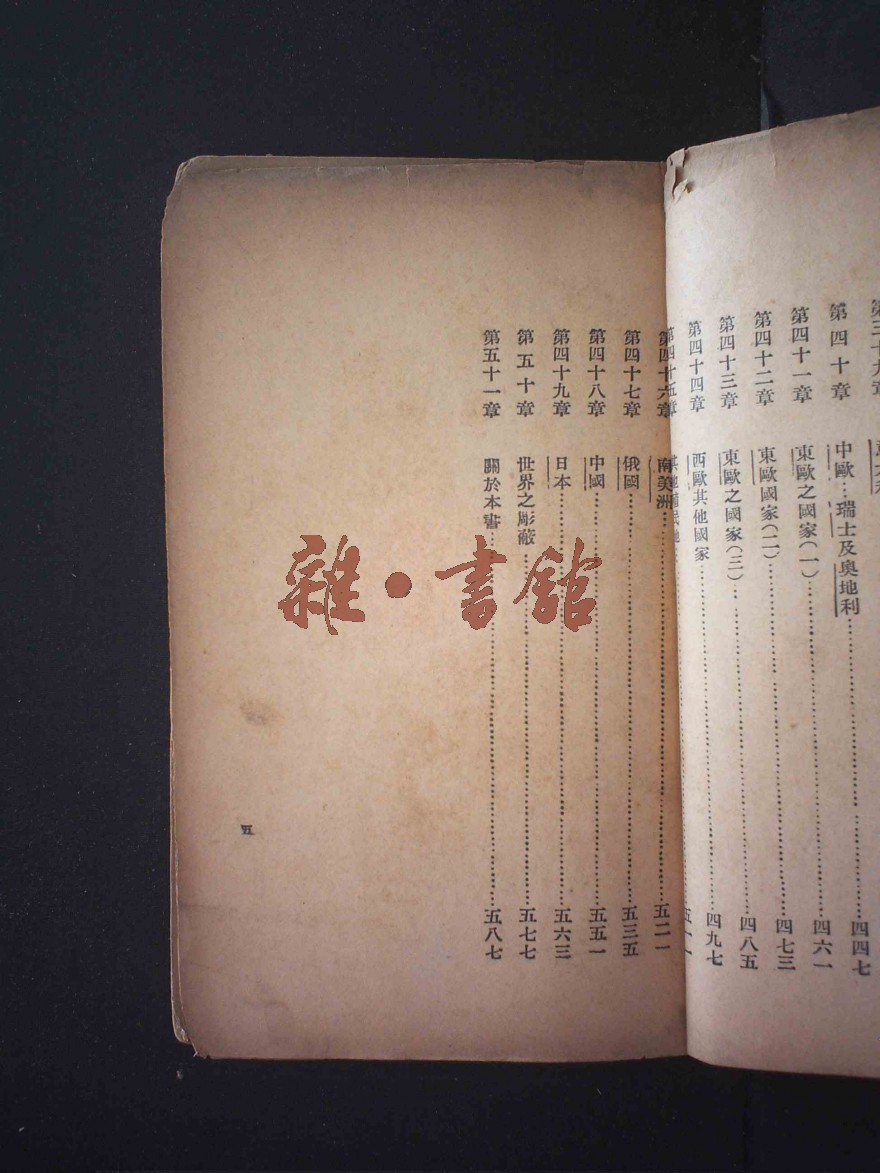 第三十九章
第四十章 中歐：瑞士及奧地利 四四七
第四十一章 東歐之國家（一） 四六一
第四十二章 東歐國家（二） 四七三
第四十三章 東歐之國家（三） 四八五
第四十四章 西歐其他國家 四九七
第四十五章 其他 五一一
第四十六章 南美洲 五二一
第四十七章 俄國 五三五
第四十八章 中國 五五一
第四十九章 日本 五六三
第五十章 世界之彫蔽 五七七
第五十一章 關於本書 五八七
五
雜·書館